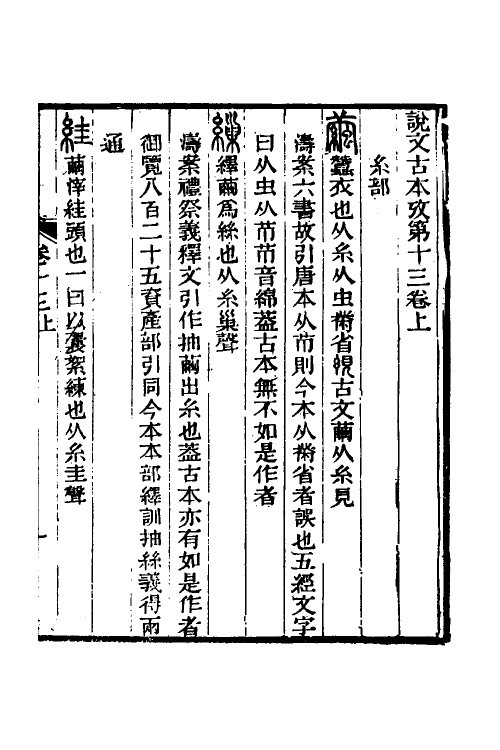 說文古本攷第十三卷上
糸部
繭蠶衣也从糸从虫黹省絸古文繭从糸見
濤案六書故引唐本从芇則今本从黹省者誤也五經文字
曰从虫从芇芇音綿葢古本無不如是作者
繅繹繭爲絲也从糸巢聲
濤案禮祭義釋文引作抽繭出糸也葢古本亦有如是作者
御覽八百二十五資產部引同今本本部繹訓抽絲義得兩
通
絓繭滓絓頭也一曰以囊絮練也从糸圭聲
卷十三上
一